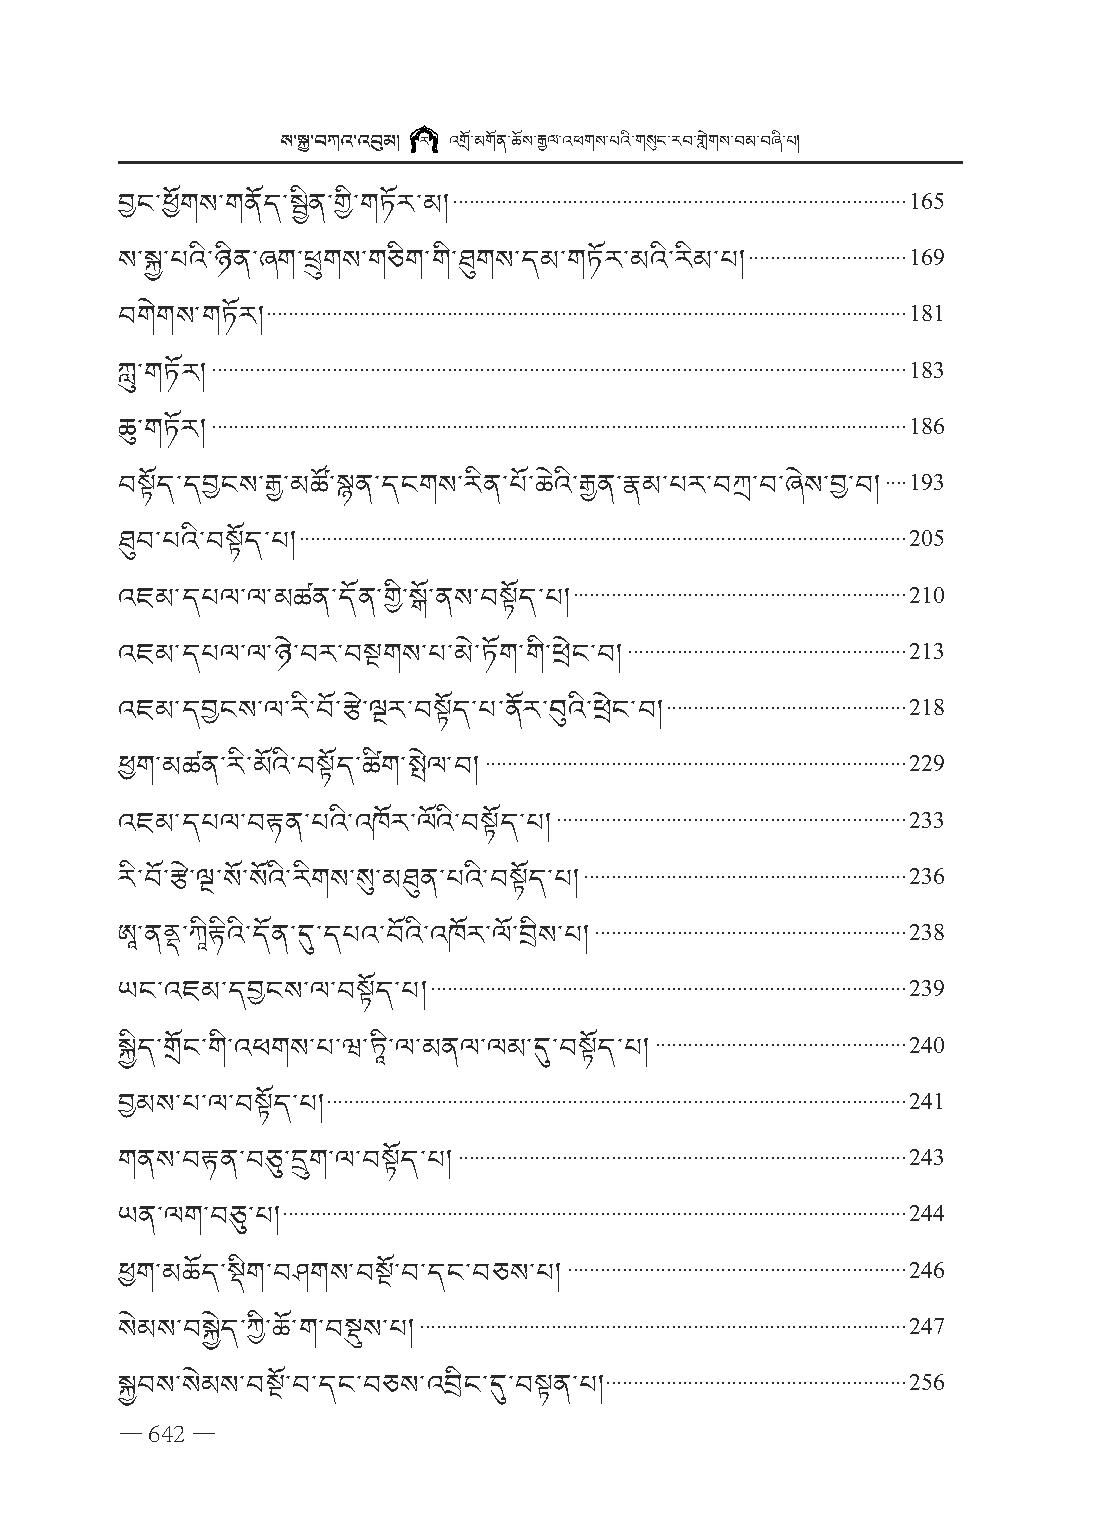 ས་སྐྱ་བཀའ་འབུམ། འགྲོ་མགོན་ཆོས་རྒྱལ་འཕགས་པའི་གསུང་རབ་གླེགས་བམ་བཞི་པ།
བྱང་ཕྱོགས་གནོད་སྦྱིན་གྱི་གཏོར་མ།····165
ས་སྐྱ་པའི་ཉིན་ཞག་ཕྲུགས་གཅིག་གི་ཐུགས་དམ་གཏོར་མའི་རིམ་པ།····169
བགེགས་གཏོར།····181
ཀླུ་གཏོར།····183
ཆུ་གཏོར།····186
བསྟོད་དབྱངས་རྒྱ་མཚོ་སྙན་དངགས་རིན་པོ་ཆེའི་རྒྱན་རྣམ་པར་བཀྲ་བ་ཞེས་བྱ་བ།····193
ཐུབ་པའི་བསྟོད་པ།····205
འཇམ་དཔལ་ལ་མཚན་དོན་གྱི་སྒོ་ནས་བསྟོད་པ།····210
འཇམ་དཔལ་ལ་ཉེ་བར་བསྔགས་པ་མེ་ཏོག་གི་ཕྲེང་བ།····213
འཇམ་དབྱངས་ལ་རི་བོ་རྩེ་ལྔར་བསྟོད་པ་ནོར་བུའི་ཕྲེང་བ།····218
ཕྱག་མཚན་རི་མོའི་བསྟོད་ཚིག་སྤེལ་བ།····229
འཇམ་དཔལ་བརྟན་པའི་འཁོར་ལོའི་བསྟོད་པ།····233
རི་བོ་རྩེ་ལྔ་སོ་སོའི་རིགས་སུ་མཐུན་པའི་བསྟོད་པ།····236
ཨཱ་ནནྡ་ཀཱིརྟིའི་དོན་དུ་དཔའ་བོའི་འཁོར་ལོ་བྲིས་པ།····238
ཡང་འཇམ་དབྱངས་ལ་བསྟོད་པ།····239
སྐྱིད་གྲོང་གི་འཕགས་པ་ཝ་ཏཱི་ལ་མནལ་ལམ་དུ་བསྟོད་པ།····240
བྱམས་པ་ལ་བསྟོད་པ།····241
གནས་བརྟན་བཅུ་དྲུག་ལ་བསྟོད་པ།····243
ཡན་ལག་བཅུ་པ།····244
ཕྱག་མཆོད་སྡིག་བཤགས་བསྔོ་བ་དང་བཅས་པ།····246
སེམས་བསྐྱེད་ཀྱི་ཆོ་ག་བསྡུས་པ།····247
སྐྱབས་སེམས་བསྔོ་བ་དང་བཅས་འབྲིང་དུ་བསྟན་པ།····256
— 642 —